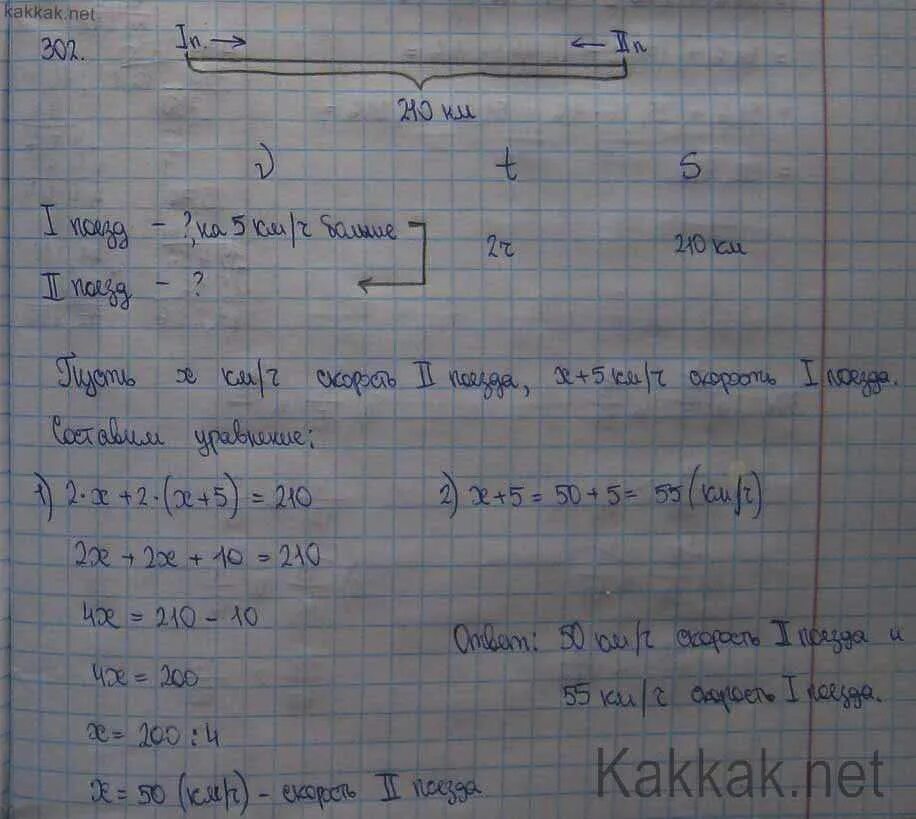 kakkak.net
302. I п. → ← II п
210 км
v t S
I поезд – ?, на 5 км/ч больше
2ч 210 км
II поезд – ?
Пусть x км/ч скорость II поезда, x+5 км/ч скорость I поезда.
Составим уравнение:
1) 2·x+2·(x+5)=210 2) x+5=50+5=55 (км/ч)
2x+2x+10=210
4x=210-10
Ответ: 50 км/ч скорость II поезда и
4x=200
55 км/ч скорость I поезда.
x=200:4
x=50 (км/ч) – скорость II поезда
Kakkak.net